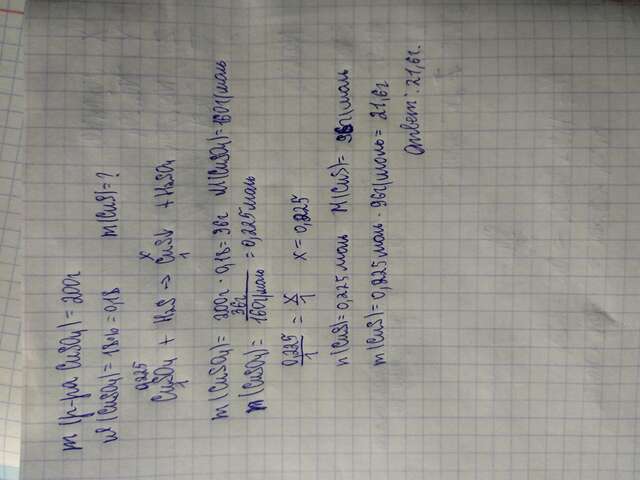 m (р-ра CuSO4) = 200г
w (CuSO4) = 18% = 0,18 m(CuS) = ?
0,225 x
CuSO4 + H2S → CuS↓ + H2SO4
1 1
m(CuSO4) = 200г · 0,18 = 36г M(CuSO4) = 160г/моль
m(CuSO4) = 36г/160г/моль = 0,225 моль
0,225/1 = x/1 x = 0,225
n(CuS) = 0,225 моль M(CuS) = 96г/моль
m(CuS) = 0,225 моль · 96г/моль = 21,6г
Ответ: 21,6г.